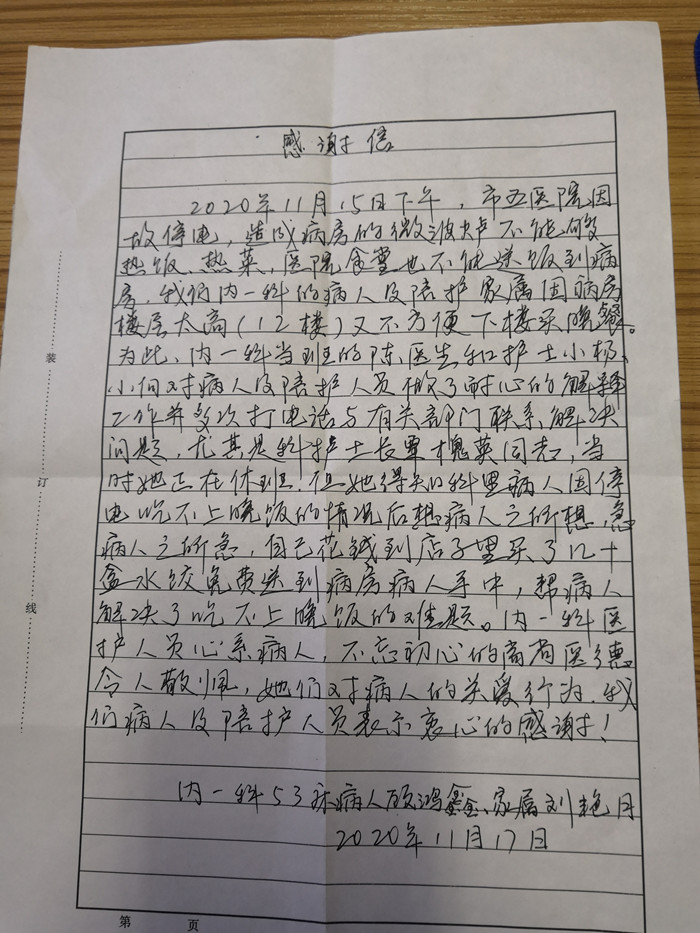 感谢信
2020年11月15日下午，市五医院因
故停电，造成病房的微波炉不能做
热饭、热菜，医院食堂也不能送饭到病
房，我们内一科的病人及陪护家属因病房
楼层太高（12楼）又不方便下楼买晚餐。
为此，内一科当班的陈医生和护士小杨、
小向对病人及陪护人员做了耐心的解释
工作并多次打电话与有关部门联系解决
问题，尤其是科护士长覃槐英同志，当
时她正在休班，但她得知科里病人因停
电吃不上晚饭的情况后想病人之所想，急
病人之所急，自己花钱到店子里买了几十
盒水饺免费送到病房病人手中，帮病人
解决了吃不上晚饭的难题。内一科医
护人员心系病人，不忘初心的高尚医德
令人敬佩，她们对病人的关爱行为，我
们病人及陪护人员表示衷心的感谢！
内一科53床病人顾鸿鑫、家属刘艳月
2020年11月17日
装
订
线
第 页